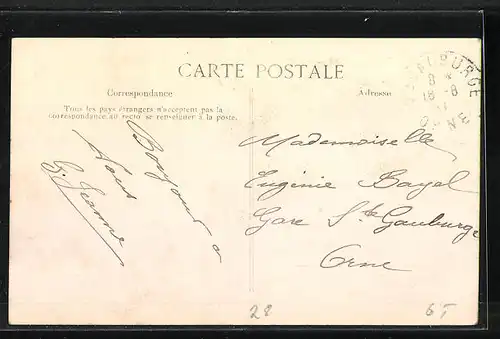 CARTE POSTALE
Correspondance
Adresse
Tous les pays étrangers n'acceptent pas la
correspondance au recto se renseigner à la poste.
Bonjour a
vous
G. Jeanne
Mademoiselle
Eugénie Bayel
Gare Ste Gauburge
Orne
GAUBURGE
8
18-8
ORNE
28
6T